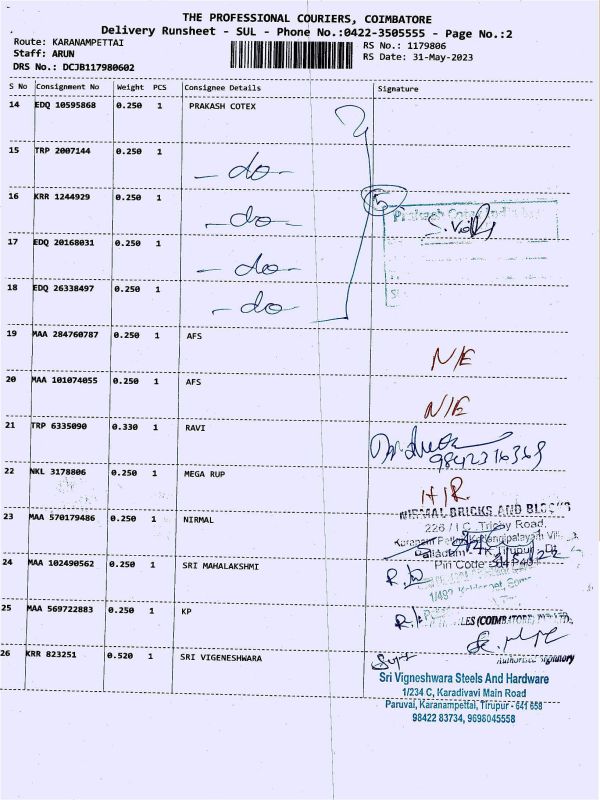 THE PROFESSIONAL COURIERS, COIMBATORE
Delivery Runsheet - SUL - Phone No.:0422-3505555 - Page No.:2
Route: KARANAMPETTAI
RS No.: 1179806
Staff: ARUN
RS Date: 31-May-2023
DRS No.: DCJB117980602
S No Consignment No Weight PCS Consignee Details Signature
14 EDQ 10595868 0.250 1 PRAKASH COTEX
15 TRP 2007144 0.250 1 - do -
16 KRR 1244929 0.250 1 - do -
5
17 EDQ 20168031 0.250 1 - do -
18 EDQ 26338497 0.250 1 - do -
19 MAA 284760787 0.250 1 AFS N/E
20 MAA 101074055 0.250 1 AFS N/E
21 TRP 6335090 0.330 1 RAVI
9842316369
22 NKL 3178806 0.250 1 MEGA RUP
NIRMAL BRICKS AND BLOCKS
23 MAA 570179486 0.250 1 NIRMAL
24 MAA 102490562 0.250 1 SRI MAHALAKSHMI
Pin Code
25 MAA 569722883 0.250 1 KP
LES (COIMBATORE)
26 KRR 823251 0.520 1 SRI VIGENESHWARA
Authorised Signatory
Sri Vigneshwara Steels And Hardware
1/234 C, Karadivavi Main Road
Paruvai, Karanampettai, Tirupur - 641 658
98422 83734, 9698045558